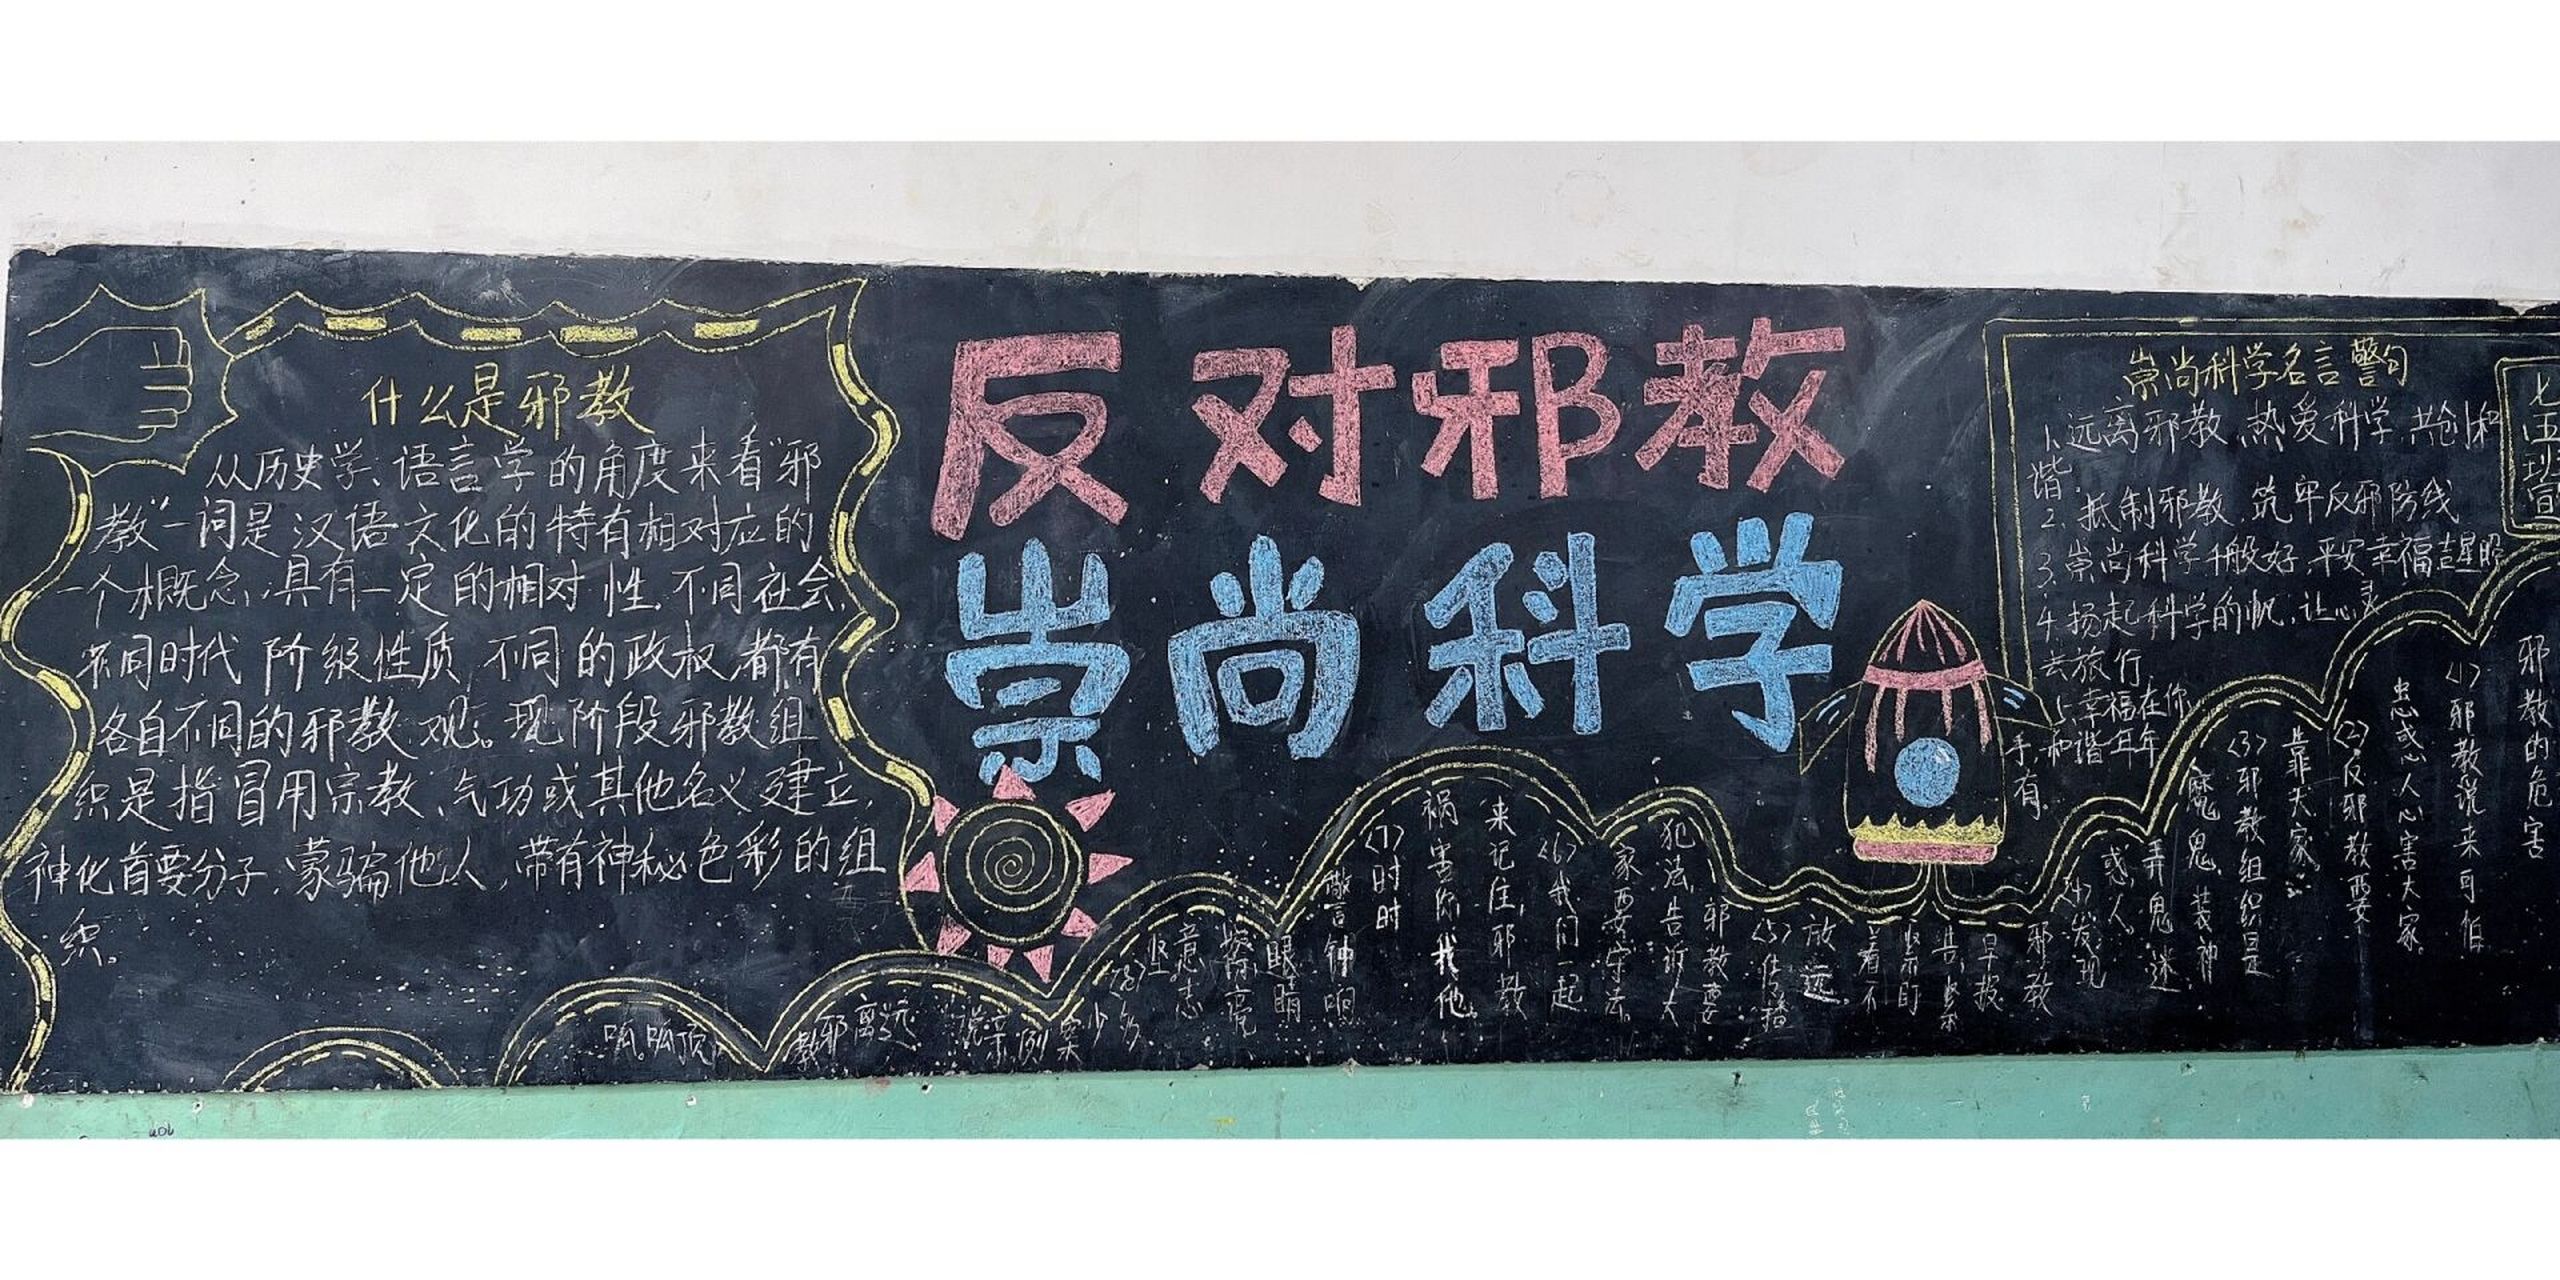 什么是邪教
从历史学、语言学的角度来看"邪
教"一词是汉语文化的特有相对应的
一个概念,具有一定的相对性.不同社会,
不同时代阶级性质不同的政权,都有
各自不同的邪教观。现阶段邪教组
织是指冒用宗教、气功或其他名义建立,
神化首要分子,蒙骗他人,带有神秘色彩的组
织。
反对邪教
崇尚科学
崇尚科学名言警句
1、远离邪教,热爱科学,共创和
谐.
2、抵制邪教,筑牢反邪防线
3、崇尚科学千般好,平安幸福
4、扬起科学的帆,让心灵
去旅行,
5、幸福在你
手,和谐年年
有。
七五班宣
邪教的危害
(1)邪教说来可怕
人心害大家。
(2)反邪教要
靠大家
(3)邪教组织是
魔鬼,装神
弄鬼迷
惑人。
(4)发现
邪教
早报
告,坚
看不
放远。
(5)传播
邪教要
犯法,告诉大
家要守法。
(6)我们一起
来记住,邪教
祸害你我他。
(7)时时
警钟响
眼睛
(8)坚
意志
多少案例
远离邪教
顶呱呱。